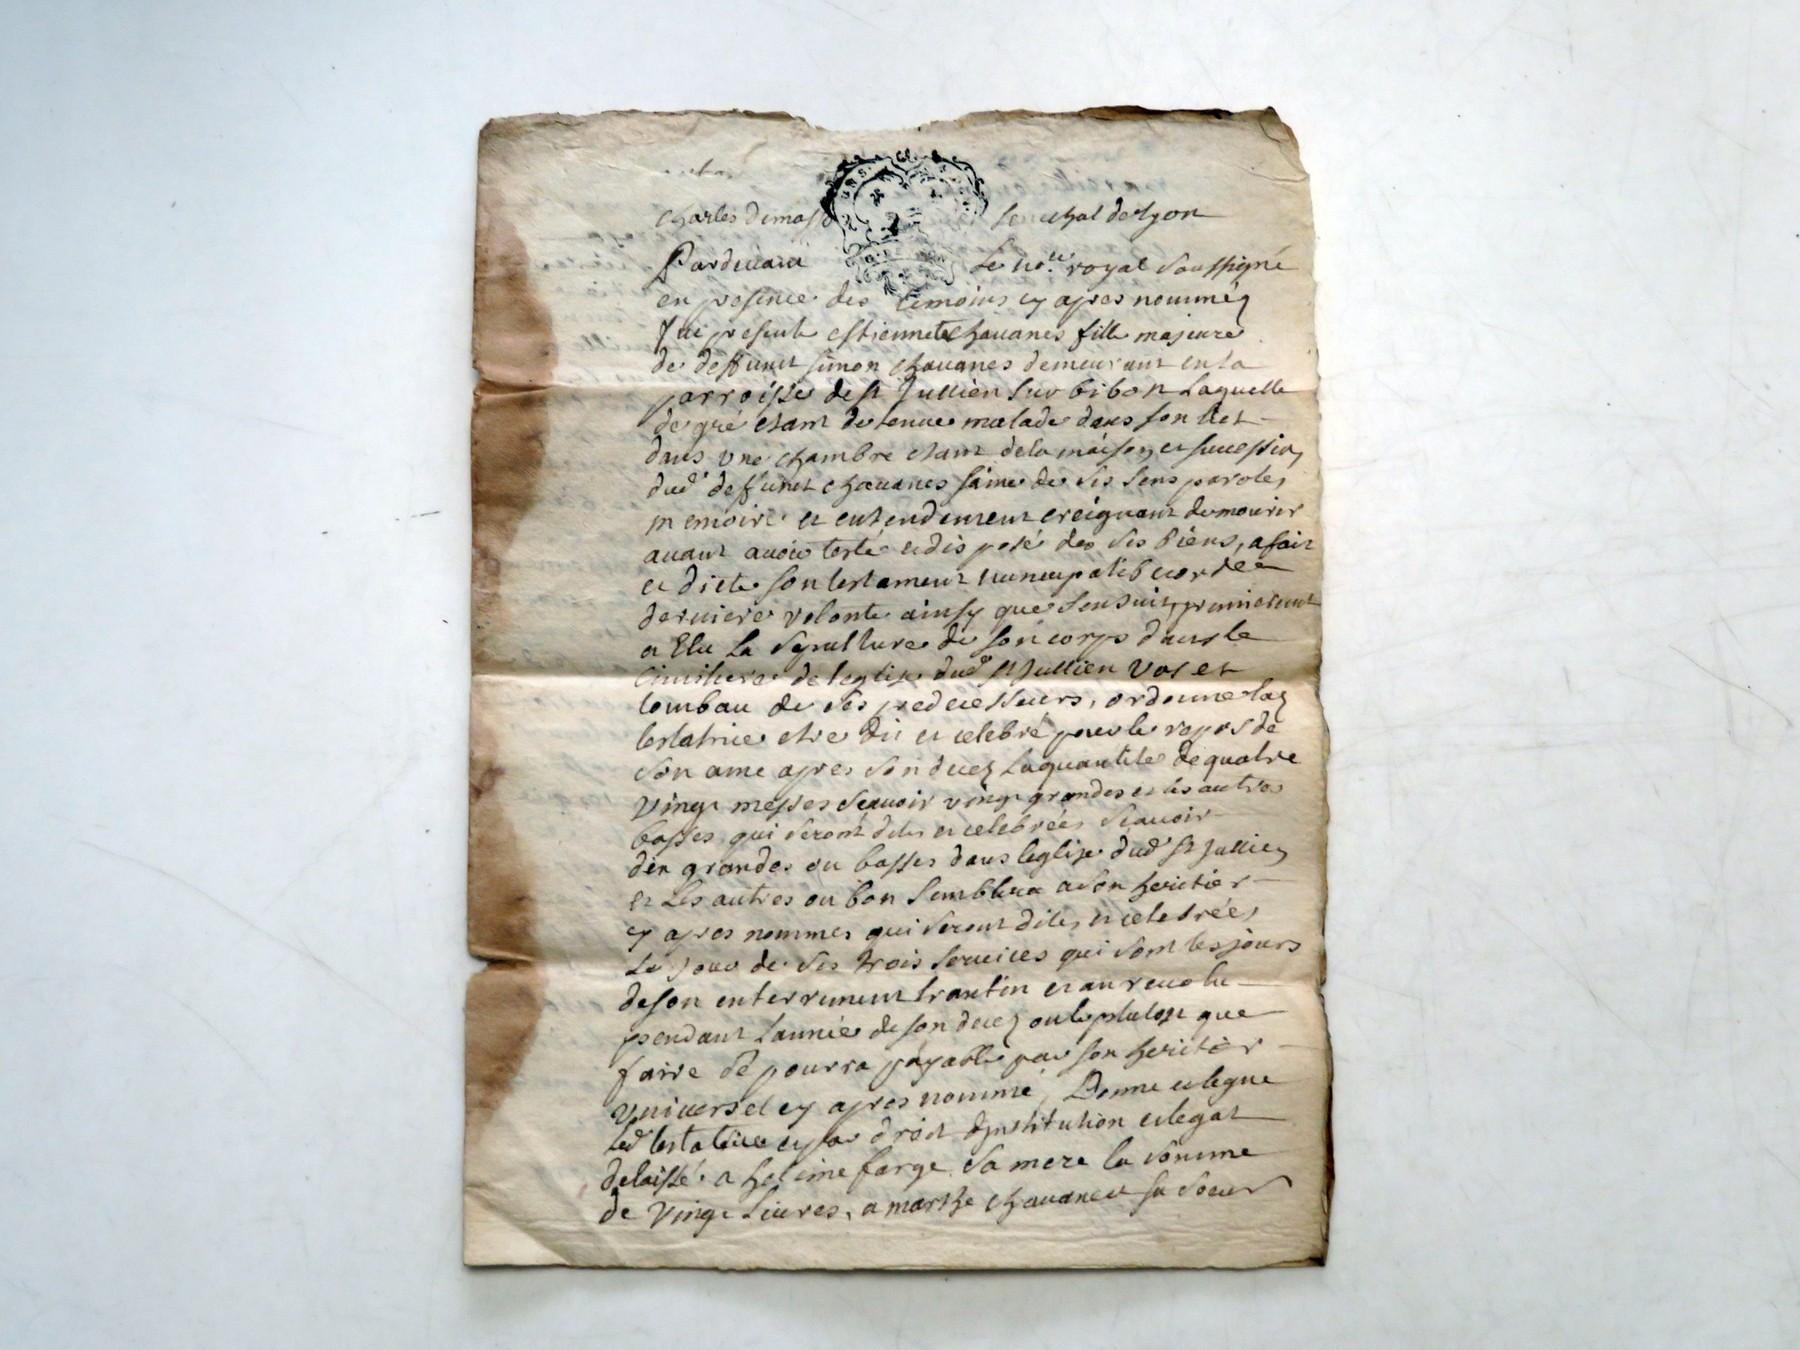 Charles Demass senechal de Lyon
Pardevant Le no.re royal soussigné
en presence des temoins cy apres nommés
fut presente estiennete chavanes fille majeure
de deffunct simon chavanes demeurant en la
parroisse de st Jullien sur bibost Laquelle
de gré etant detenue malade dans son lict
dans une chambre etant de la maison et succession
dud deffunct chavanes saine de ses sens parole,
memoire et entendement creignant de mourir
avant avoir testé et disposé des ses biens, a fait
et dicté son testament nuncupatif et ordce
derniere volonte ainsy que sensuit, premierement
a Elu La sepulture de son corps dans le
Cimitiere de leglise dud st Jullien vas et
tombau de ses predecesseurs, ordonne lad
testatrice etre dit et celebré pour le repos de
son ame apres son decez la quantité de quatre
vingt messes scavoir vingt grandes et les autres
basses qui seront dites et celebrées scavoir
dix grandes ou basses dans leglise dud st Jullien
et Les autres ou bon semblera a son heritier
cy apres nommes qui seront dites et celebrées
Le jour de ses trois services qui sont les jours
de son enterrement trantin et au revolu
pendant Lannée de son decez ou le plutost que
faire se pourra payable par son heritier
universel cy apres nommé, Donne et legue
lad testatrice et par droit dinstitution et legat
delaissé a helime farge sa mere la somme
de vingt Livres, a marthe chavanes sa soeur